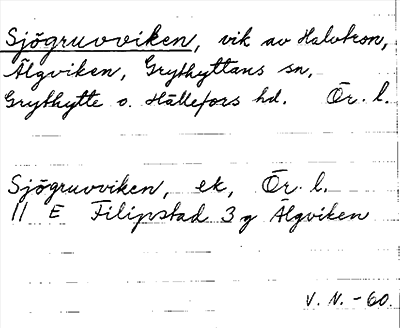 Sjögruvviken, vik av Halvtron,
Älgviken, Grythyttans sn,
Grythytte o. Hällefors hd. Ör. l.
Sjögruvviken, ek, Ör. l.
11 E Filipstad 3 g Älgviken
V. N. -60.